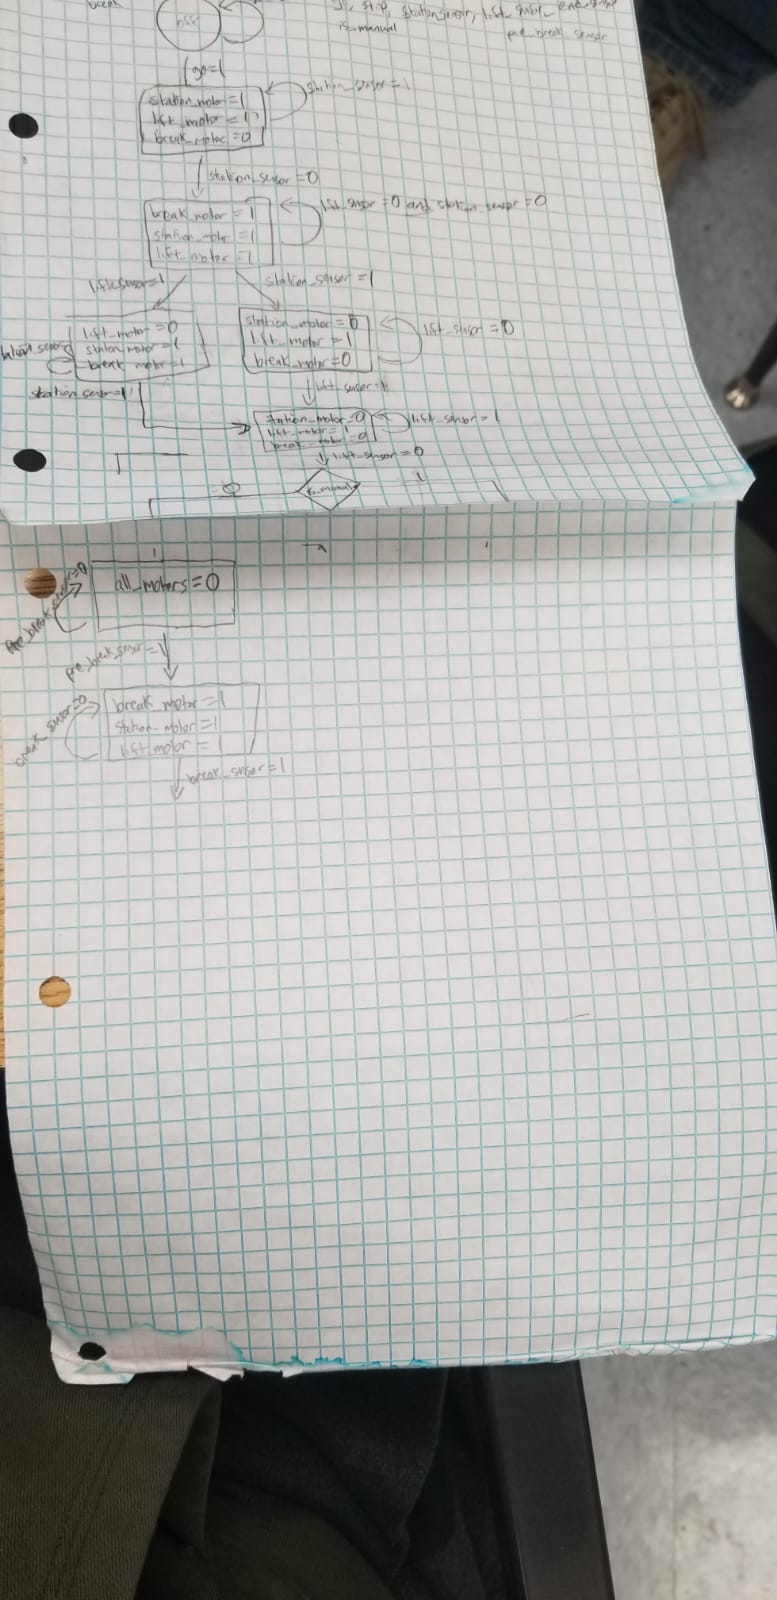 break
stop, station sensor, lift_sensor, end_sensor
is_manual
pre_break sensor
go=1
station_motor=1
lift_motor=1
break_motor=0
station_sensor=1
station_sensor=0
break_motor=1
station_motor=1
lift_motor=1
lift_sensor=0 and station_sensor=0
station_sensor=1
lift_motor=0
station_motor=1
break motor=1
station_motor=0
lift_motor=1
break_motor=0
lift_sensor=0
station sensor=1
station_motor=0
lift_motor=1
break_motor=0
lift_sensor=1
lift_sensor=0
0
is_manual
1
all_motors=0
pre_break_sensor=0
pre_break_sensor=1
break_motor=1
station_motor=1
lift_motor=1
break_sensor=0
break_sensor=1